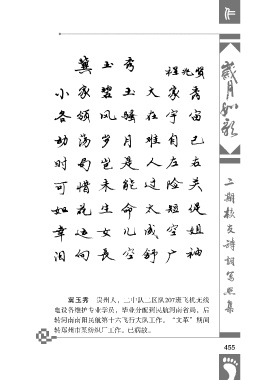 冀玉秀
程兆贤
小家碧玉大家秀
各领风骚在宇宙
动荡岁月难自己
时局岂是人左右
可惜未能过险关
如花生命太短促
幸运女儿成空姐
泪向长空舒广袖
冀玉秀 州人，二中队二区队207班飞机无线
电设备维护专业学员，毕业分配到民航河南省局，后
转河南南阳民航第十六飞行大队工作。“文革”期间
转郑州市某纺织厂工作。已病故。
岁月如歌
二期校友诗词写照集
455